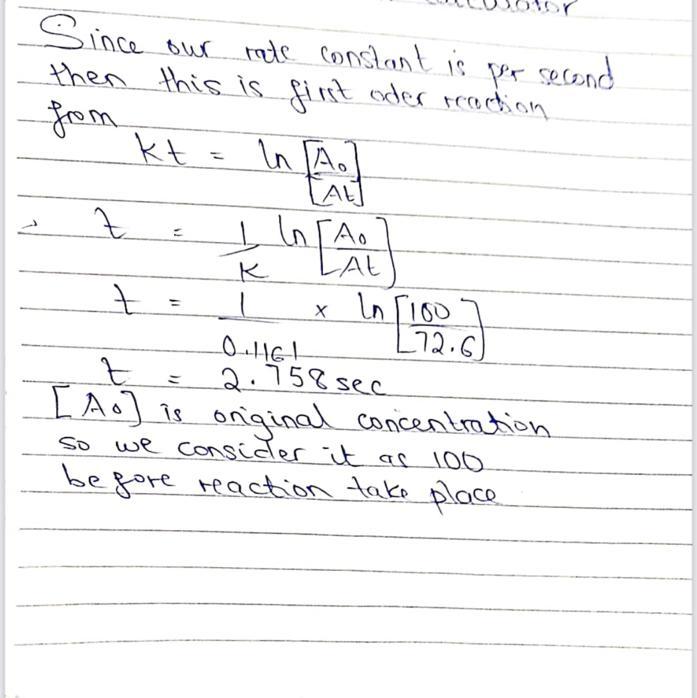 Since our rate constant is per second
then this is first oder reaction
from
kt = ln [A₀]/[At]
t = 1/K ln [A₀/At]
t = 1/0.1161 × ln [100/72.6]
t = 2.758 sec
[A₀] is original concentration
so we consider it as 100
before reaction take place